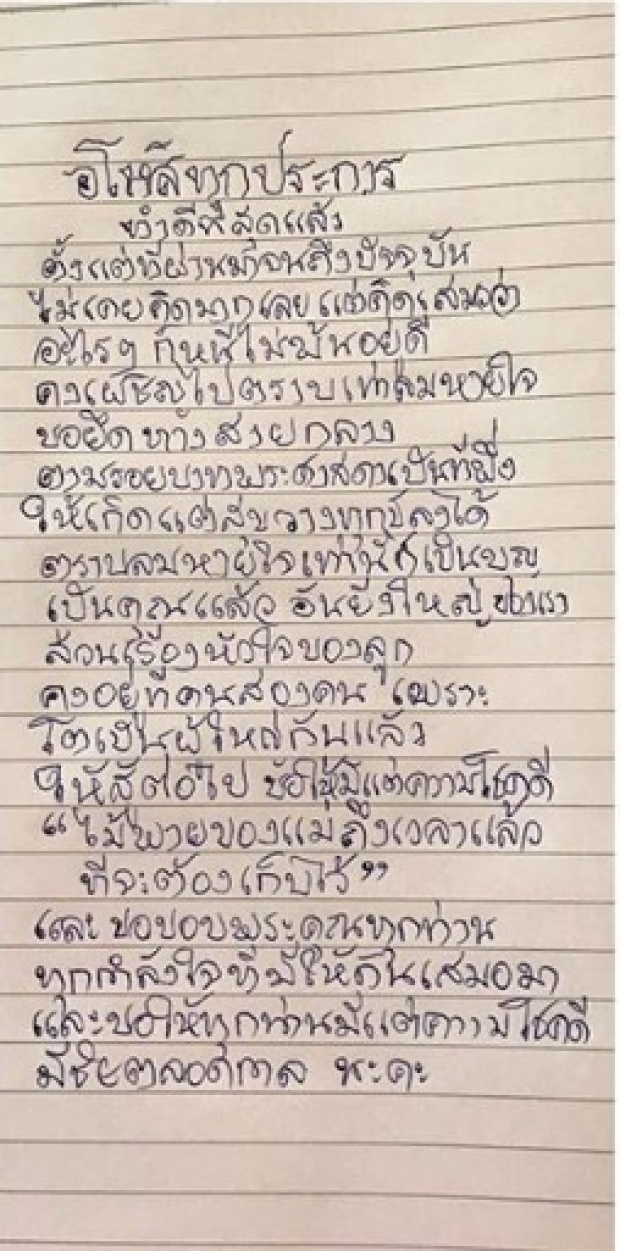 อโหสิทุกประการ
ทำดีที่สุดแล้ว
ตั้งแต่ที่ผ่านมาจนถึงปัจจุบัน
ไม่เคยคิดมากเลย แต่คิดเสมอว่า
อะไรๆ ก็หนีไม่พ้นอยู่ดี
คงเผชิญไปตราบเท่าลมหายใจ
ขอยึดทางสายกลาง
ตามรอยบาทพระศาสดาเป็นที่พึ่ง
ให้เกิดแต่สุขวางทุกข์ลงได้
ตราบลมหายใจเท่านี้ก็เป็นบุญ
เป็นคุณแล้ว อันยิ่งใหญ่ของเรา
ส่วนเรื่องหัวใจของลูก
คงอยู่ที่คนสองคน เพราะ
โตเป็นผู้ใหญ่กันแล้ว
ให้สู้ต่อไป ขอให้มีแต่ความโชคดี
“ไม้พายของแม่ถึงเวลาแล้ว
ที่จะต้องเก็บไว้”
และขอขอบพระคุณทุกท่าน
ทุกกำลังใจที่มีให้กันเสมอมา
และขอให้ทุกท่านมีแต่ความโชคดี
มีชัยตลอดกาล นะคะ